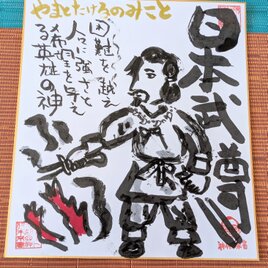 やまとたけるのみこと
日本武尊
困難を越え
人々に強さと
希望を与え
る英雄の神